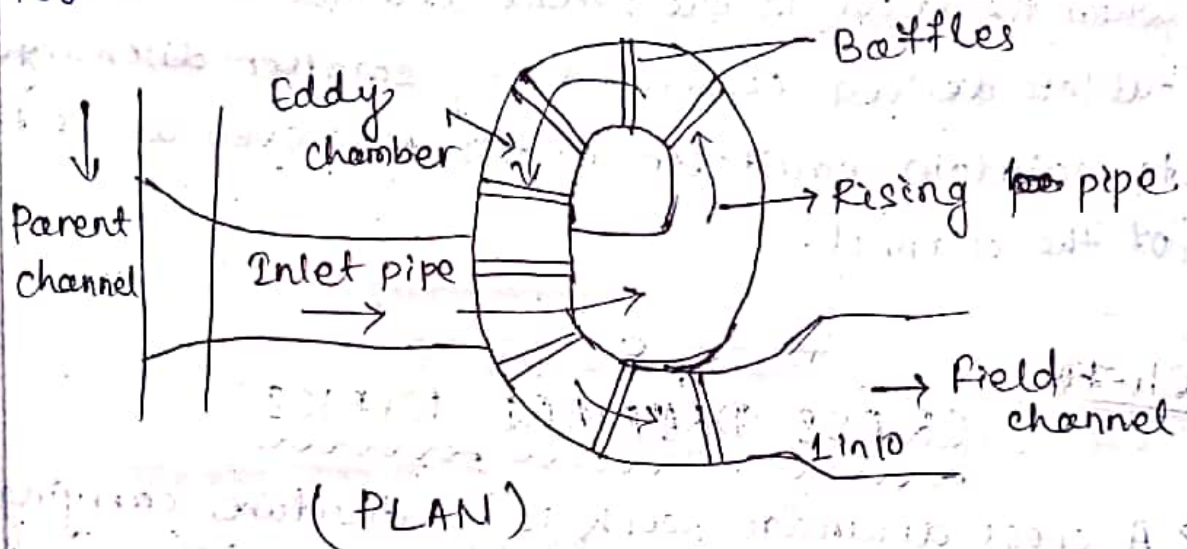 Baffles
Eddy
chamber
Rising pipe
Parent
channel
Inlet pipe
Field
channel
1 in 10
(PLAN)